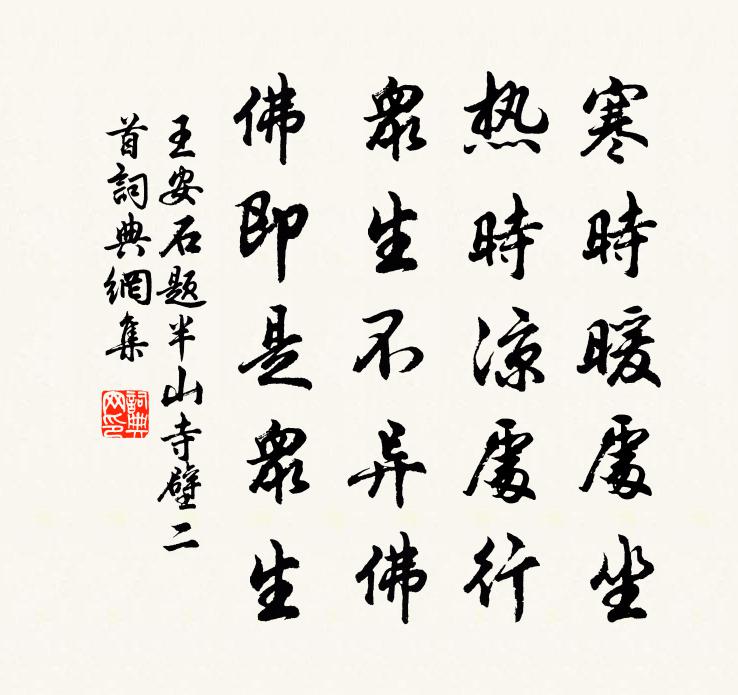 寒時暖處坐
热時凉處行
眾生不异佛
佛即是眾生
王安石题半山寺壁二
首詞典網集
詞典
网印